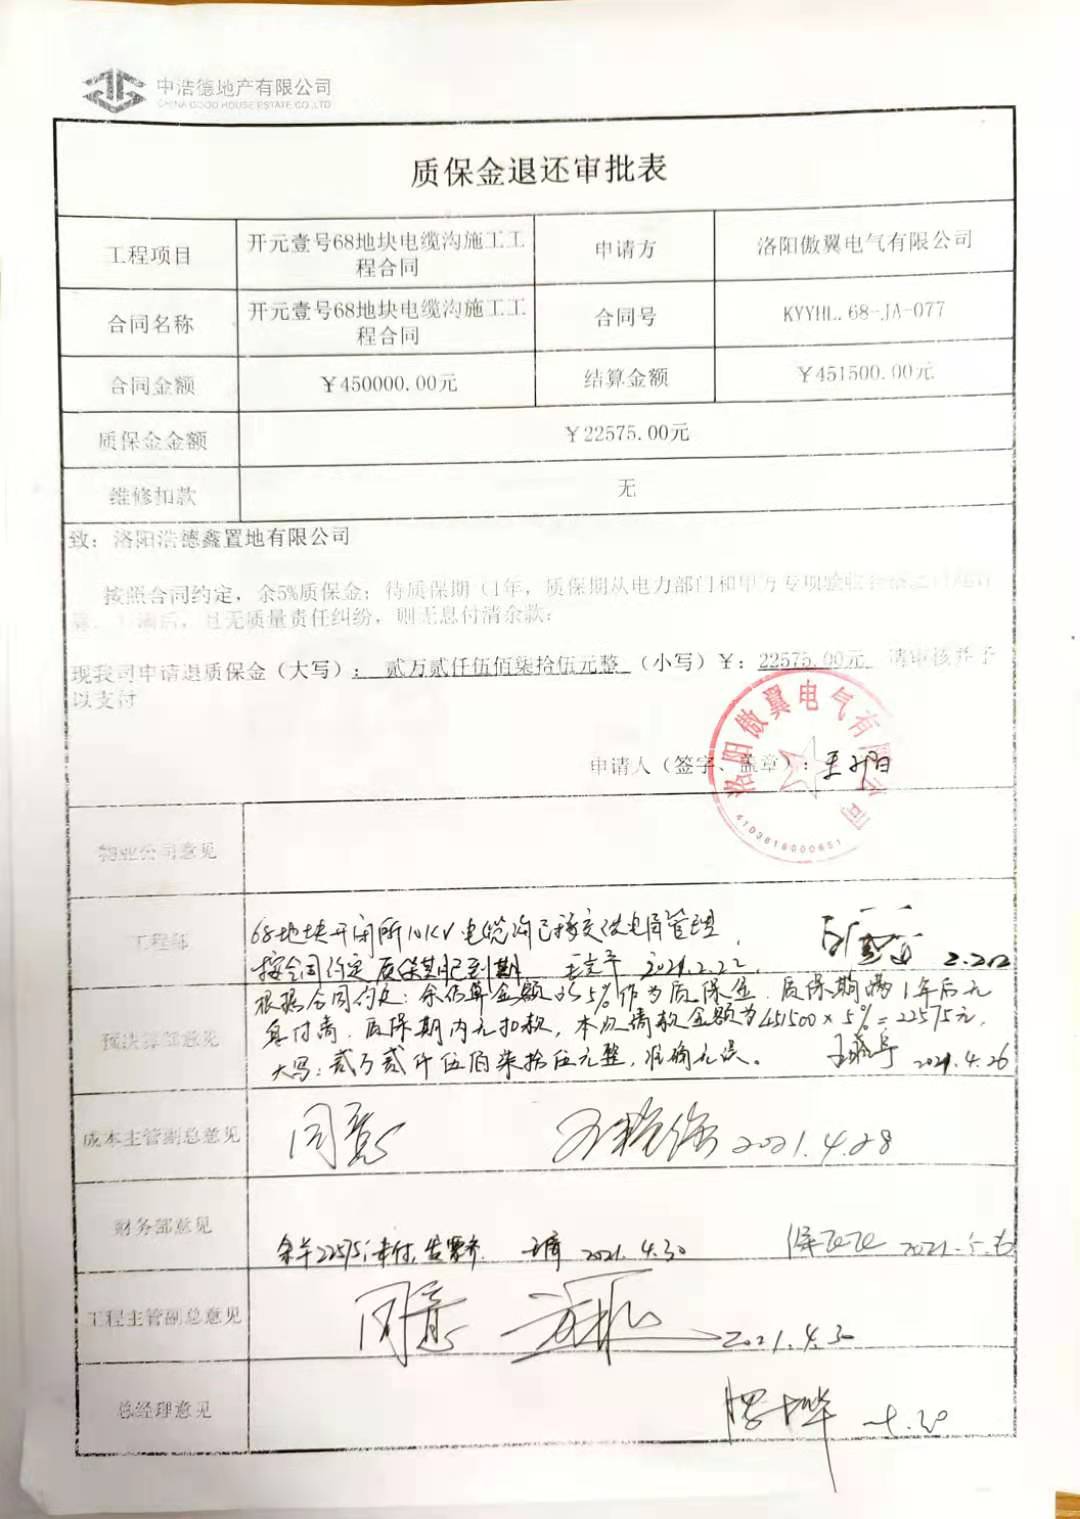 中浩德地产有限公司
CHINA GOOD HOUSE ESTATE CO.,LTD
质保金退还审批表
工程项目 开元壹号68地块电缆沟施工工程合同 申请方 洛阳傲翼电气有限公司
合同名称 开元壹号68地块电缆沟施工工程合同 合同号 KYYHL.68-JA-077
合同金额 ￥450000.00元 结算金额 ￥451500.00元
质保金金额 ￥22575.00元
维修扣款 无
致：洛阳浩德鑫置地有限公司
按照合同约定，余5%质保金；待质保期（1年，质保期从电力部门和甲方专项验收
满后，且无质量责任纠纷，则无息付清余款；
现我司申请退质保金（大写）：贰万贰仟伍佰柒拾伍元整（小写）￥：22575.00元 请审核并予
以支付
申请人（签字、盖章）：
洛阳傲翼电气有限公司
4103818000651
物业公司意见
工程部
68地块开闭所10KV电缆沟已移交供电局管理，
按合同约定质保期已到期 2021.2.22.
预决算部意见
根据合同约定：余结算金额的5%作为质保金，质保期满1年后无
息付清．质保期内无扣款，本次请款金额为451500×5%=22575元，
大写：贰万贰仟伍佰柒拾伍元整，准确无误。 2021.4.26
成本主管副总意见 同意 2021.4.28
财务部意见 2021.4.30
工程主管副总意见 同意 2021.4.30
总经理意见